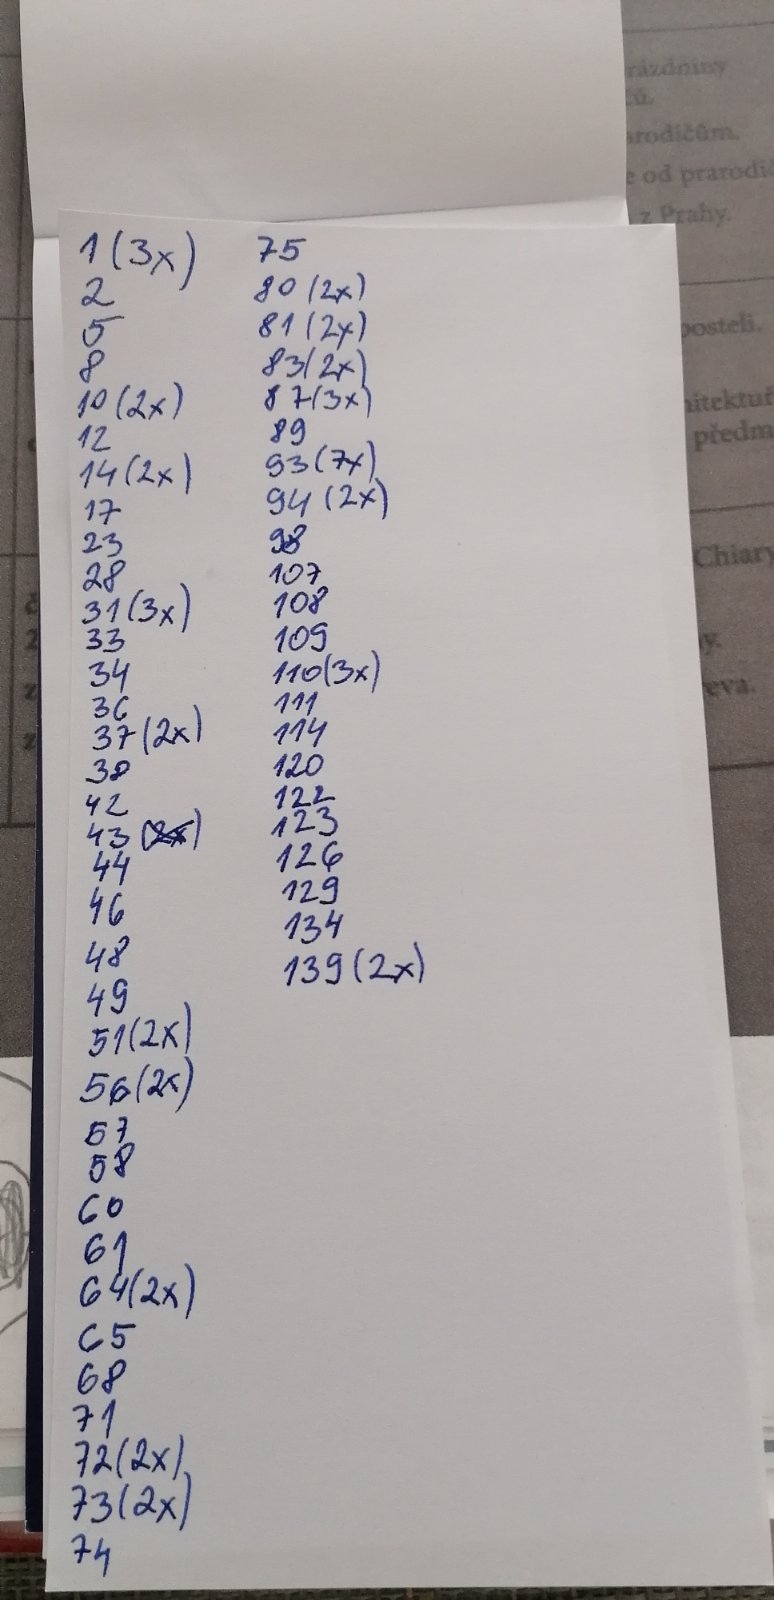 rázdniny
ů.
arodičům.
e od prarodi
z Prahy.
posteli.
hitektuř
předm
Chiary
y.
eva.
1 (3x)
2
5
8
10 (2x)
12
14 (2x)
17
23
28
31 (3x)
33
34
36
37 (2x)
38
42
43 (2x)
44
46
48
49
51 (2x)
56 (2x)
57
58
60
61
64 (2x)
65
68
71
72 (2x)
73 (2x)
74
75
80 (2x)
81 (2x)
83 (2x)
87 (3x)
89
93 (7x)
94 (2x)
98
107
108
109
110 (3x)
111
114
120
122
123
126
129
134
139 (2x)